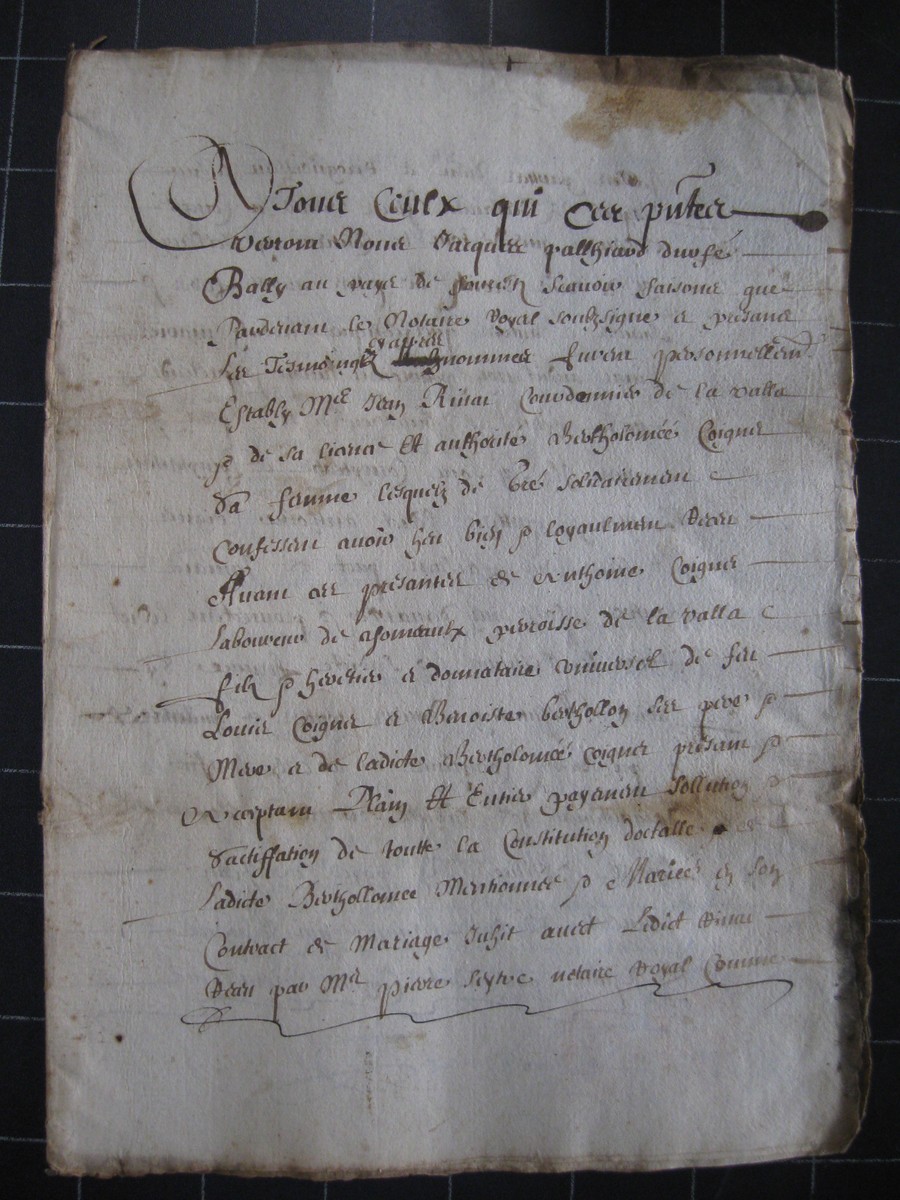 A Tous Ceulx qui Ces pñtes
verront Nous Jacques palhiard durfé
Bally au pays de forestz scavoir faisons que
Pardevant le Notaire Royal soubzsigne e presans
Les Tesmoingz cy apprés nommes furent personnellemt
Estably Mre Jean Rivat Courdonnier de la valla
p de sa licence Et authorité Bertholomée Coignet
Sa femme lesquelz de gré solidairement
Confessent avoir heu bien p loyaulment Receu
Avant ces presantes de Anthoine Coignet
Laboureur de parroisse de la valla
filz p heretier e donnataire universel de feu
Louis Coignet e Benoiste berthollon ses pere p
Mere e de ladicte Bertholomée Coignet presant p
Acceptant Plain Et Entier payement sollution p
Sactiffation de toutte la Constitution doctalle
Ladicte Berthollomee Mentionnée p en son
Contract de Mariage avect Ledict Rivat
Receu par Mre pierre notaire Royal Comme